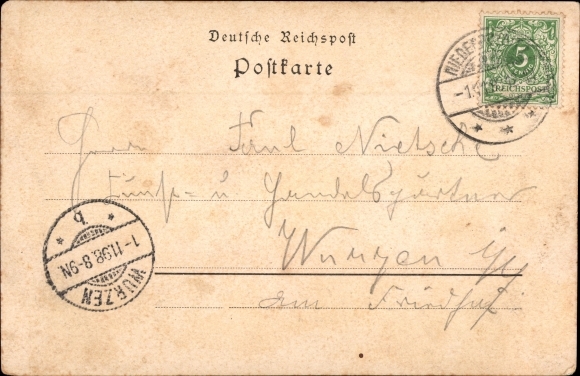 Deutsche Reichspost
Postkarte
5
REICHSPOST
Herrn Paul Nietsche
Kunst- u Handelsgärtner
Wurzen i/S
am Friedhof
WURZEN
1-11.98.8-9N
b